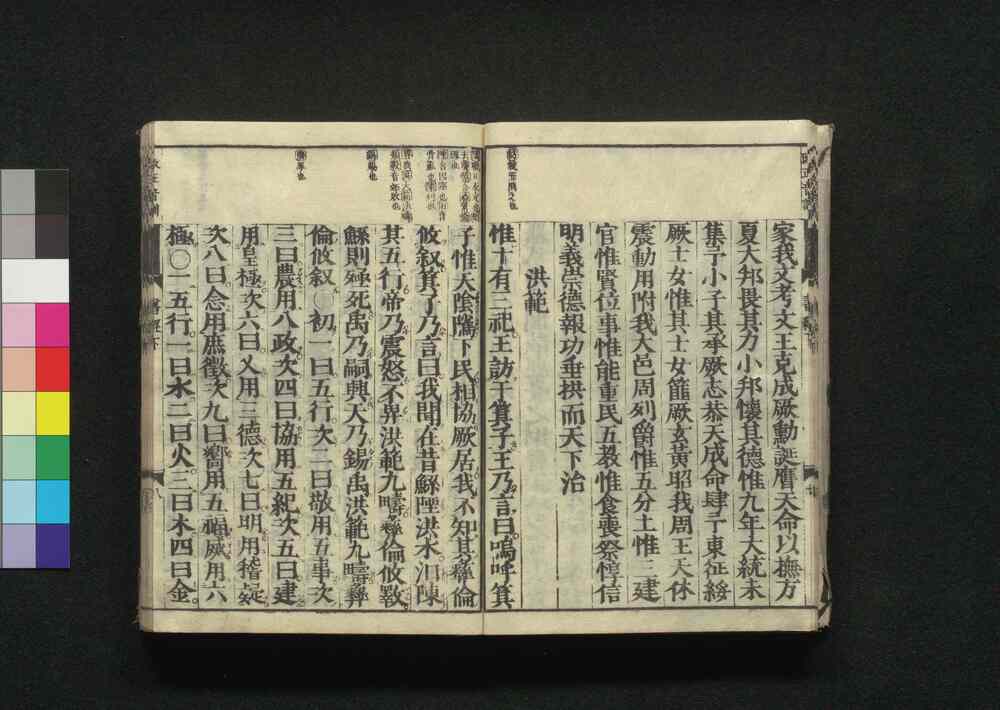 家我文考文王克成厥勳誕膺天命以撫方
夏大邦畏其力小邦懷其德惟九年大統未
集予小子其承厥志恭天成命肆予東征綏
厥士女惟其士女篚厥玄黃昭我周王天休
震動用附我大邑周列爵惟五分土惟三建
官惟賢位事惟能重民五教惟食喪祭惇信
明義崇德報功垂拱而天下治
洪範
惟十有三祀王訪于箕子王乃言曰嗚呼箕
子惟天陰騭下民相協厥居我不知其彝倫
攸叙箕子乃言曰我聞在昔鯀陻洪水汨陳
其五行帝乃震怒不畀洪範九疇彝倫攸斁
鯀則殛死禹乃嗣興天乃錫禹洪範九疇彝
倫攸叙〇初一曰五行次二曰敬用五事次
三曰農用八政次四曰協用五紀次五曰建
用皇極次六曰乂用三德次七曰明用稽疑
次八曰念用庶徵次九曰嚮用五福威用六
極〇一五行一曰水二曰火三曰木四曰金